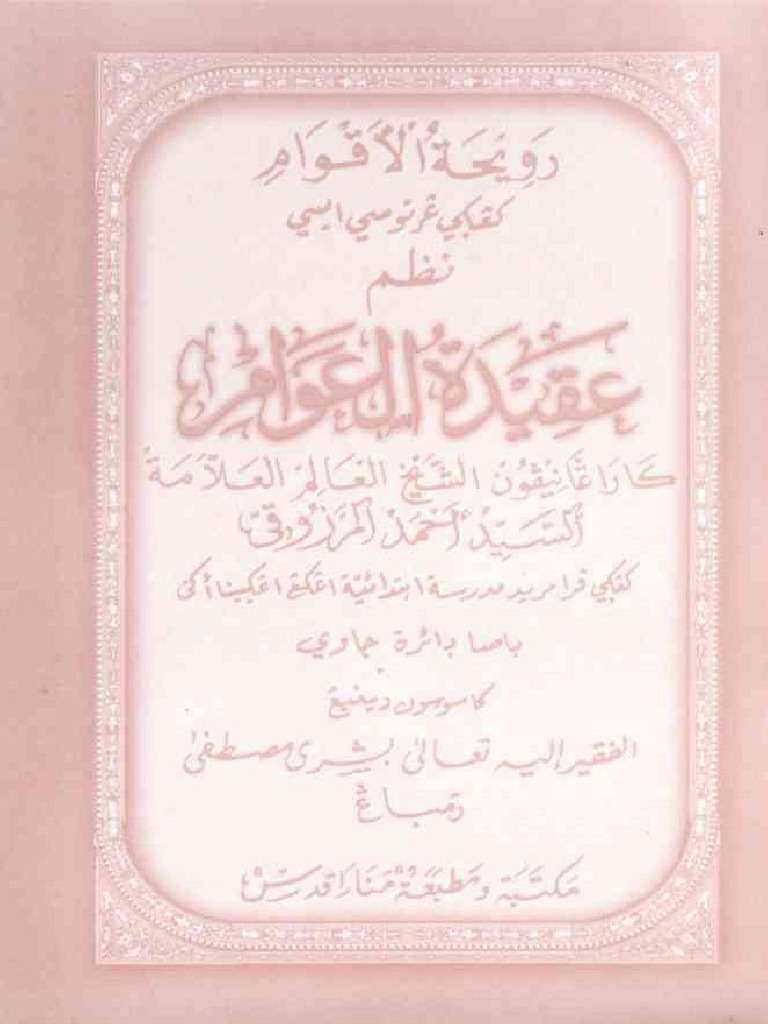 رَوَيْحَةُ الْأَقْوَامِ
كڠڬي ڠرتوسي ايسي
نظم
عَقِيْدَةُ الْعَوَامِ
كَارَاڠَانيڤُوْن الشَّيْخ الْعَالِمْ الْعَلَّامَةْ
اَلسَّيِّدْ أَحْمَدْ اَلْمَرْزُوْقِيْ
كڠڬي ڤرا مريد مدرسة ابتدائيّة اڠكڠ اڠڬيناأكن
باهسا دائرة جاوي
كاسوسون دينيڠ
الفقير إليه تعالى بِشْرِى مصطفىٰ
رمباڠ
مَكْتَبَة وَمَطْبَعَة مَنَارَا قُدُسْ